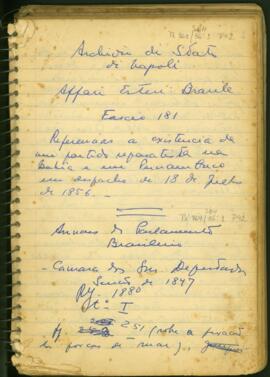 Archivio di Stato
di Napoli
Affari Esteri: Brasile
Fascio 181
Referencias a existencia de
um partido separatista na
Bahia e em Pernambuco
em despacho de 18 de Julho
de 1856.
Annaes do Parlamento
Brasileiro
Camara dos Srs Deputados
Sessão de 1847
RJ 1880
t. I
p. 251 (sobre a fixação
de forças de mar)